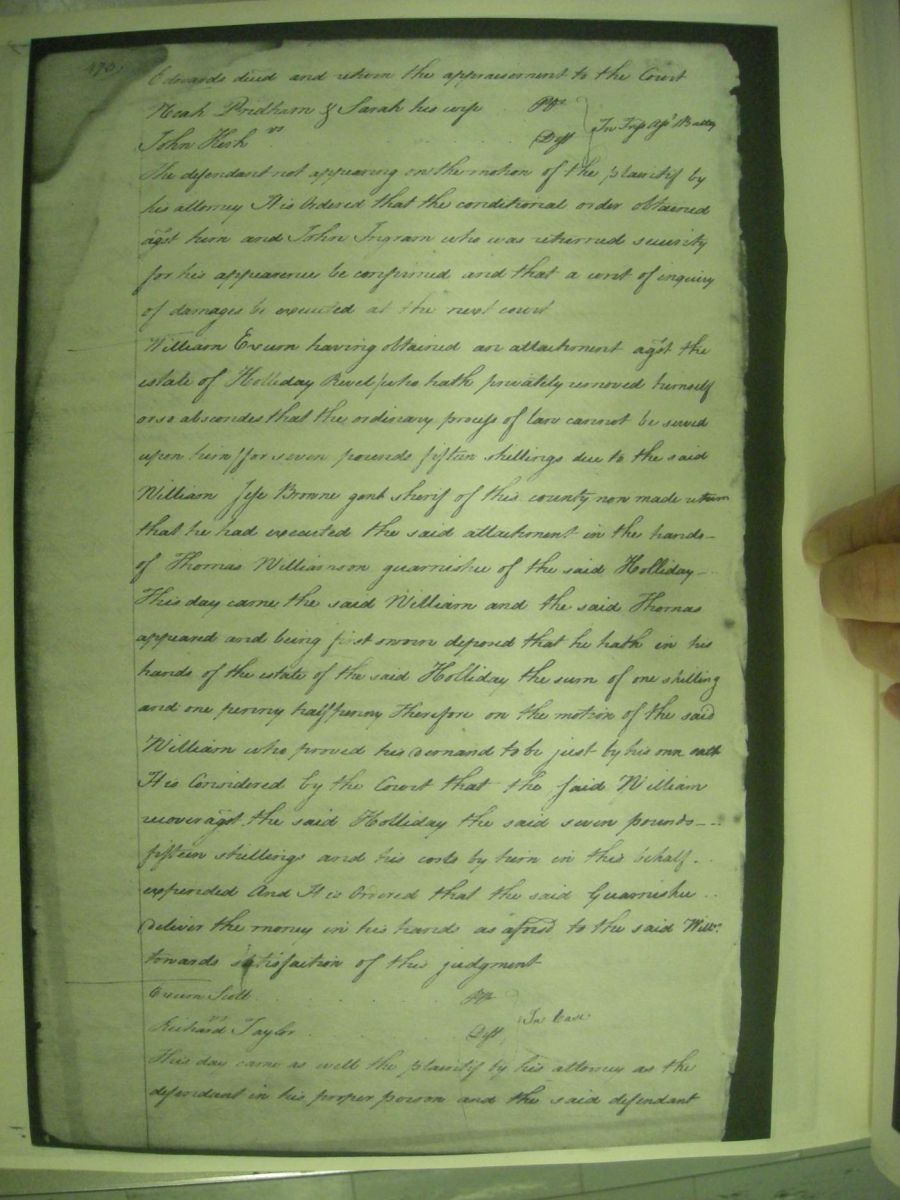 470,
Edwards decd and return the appraisement to the Court
Noah Pridham & Sarah his wife Plts
vs In Tresp Ass Batty
John Hesh Deft
The defendant not appearing on the motion of the plaintif by
his attorney It is Ordered that the conditional order obtained
agst him and John Ingram who was returned security
for his appearence be confirmed and that a writ of inquiry
of damages be executed at the next court
William Exum having obtained an attachment agst the
estate of Holliday Revel (who hath privately removed himself
or so abscondes that the ordinary process of law cannot be served
upon him) for seven pounds fifteen shillings due to the said
William Jesse Browne gent sherif of this county now made return
that he had executed the said attachment in the hands
of Thomas Williamson guarnishee of the said Holliday
This day came the said William and the said Thomas
appeared and being first sworn deposed that he hath in his
hands of the estate of the said Holliday the sum of one shilling
and one penny half penny Therefore on the motion of the said
William who proved his demand to be just by his own oath
It is Considered by the Court that the said William
recover agst the said Holliday the said seven pounds
fifteen shillings and his costs by him in this behalf
expended And It is Ordered that the said Guarnishee
deliver the money in his hands as afresd to the said Willm
towards satisfaction of the judgment
Exum Scott Plt
vs In Case
Richard Taylor Deft
This day came as well the plaintif by his attorney as the
defendant in his proper person and the said defendant